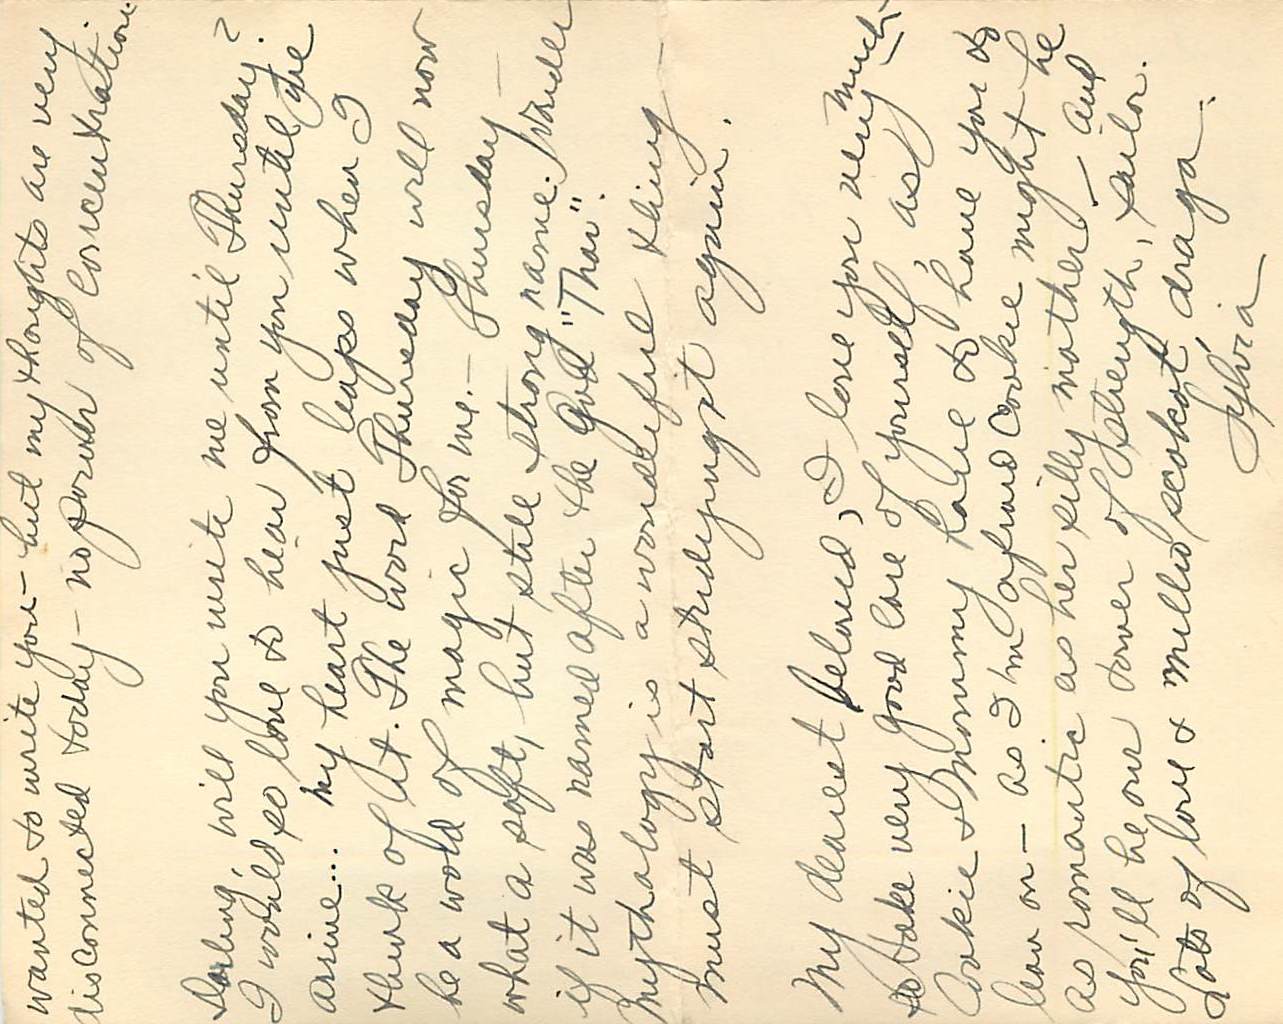 wanted to write you - but my thoughts are very
disconnected today - no power of concentration.
Darling, will you write me until Thursday?
I would so love to hear from you until you
arrive... my heart just leaps when I
think of it. The word Thursday will now
be a world of magic for me. - Thursday -
what a soft, but still strong name. Wonder
if it was named after the God "Thor".
Mythology is a wonderful thing -
must start studying it again.
My dearest beloved, I love you very much -
so take very good care of yourself, as
Cookie & Mommy have to have you to
lean on - as I'm afraid Cookie might be
as romantic as her silly mother - and
you'll be our tower of strength, sailor.
Lots of love & millio scokot draga.
Sylvia